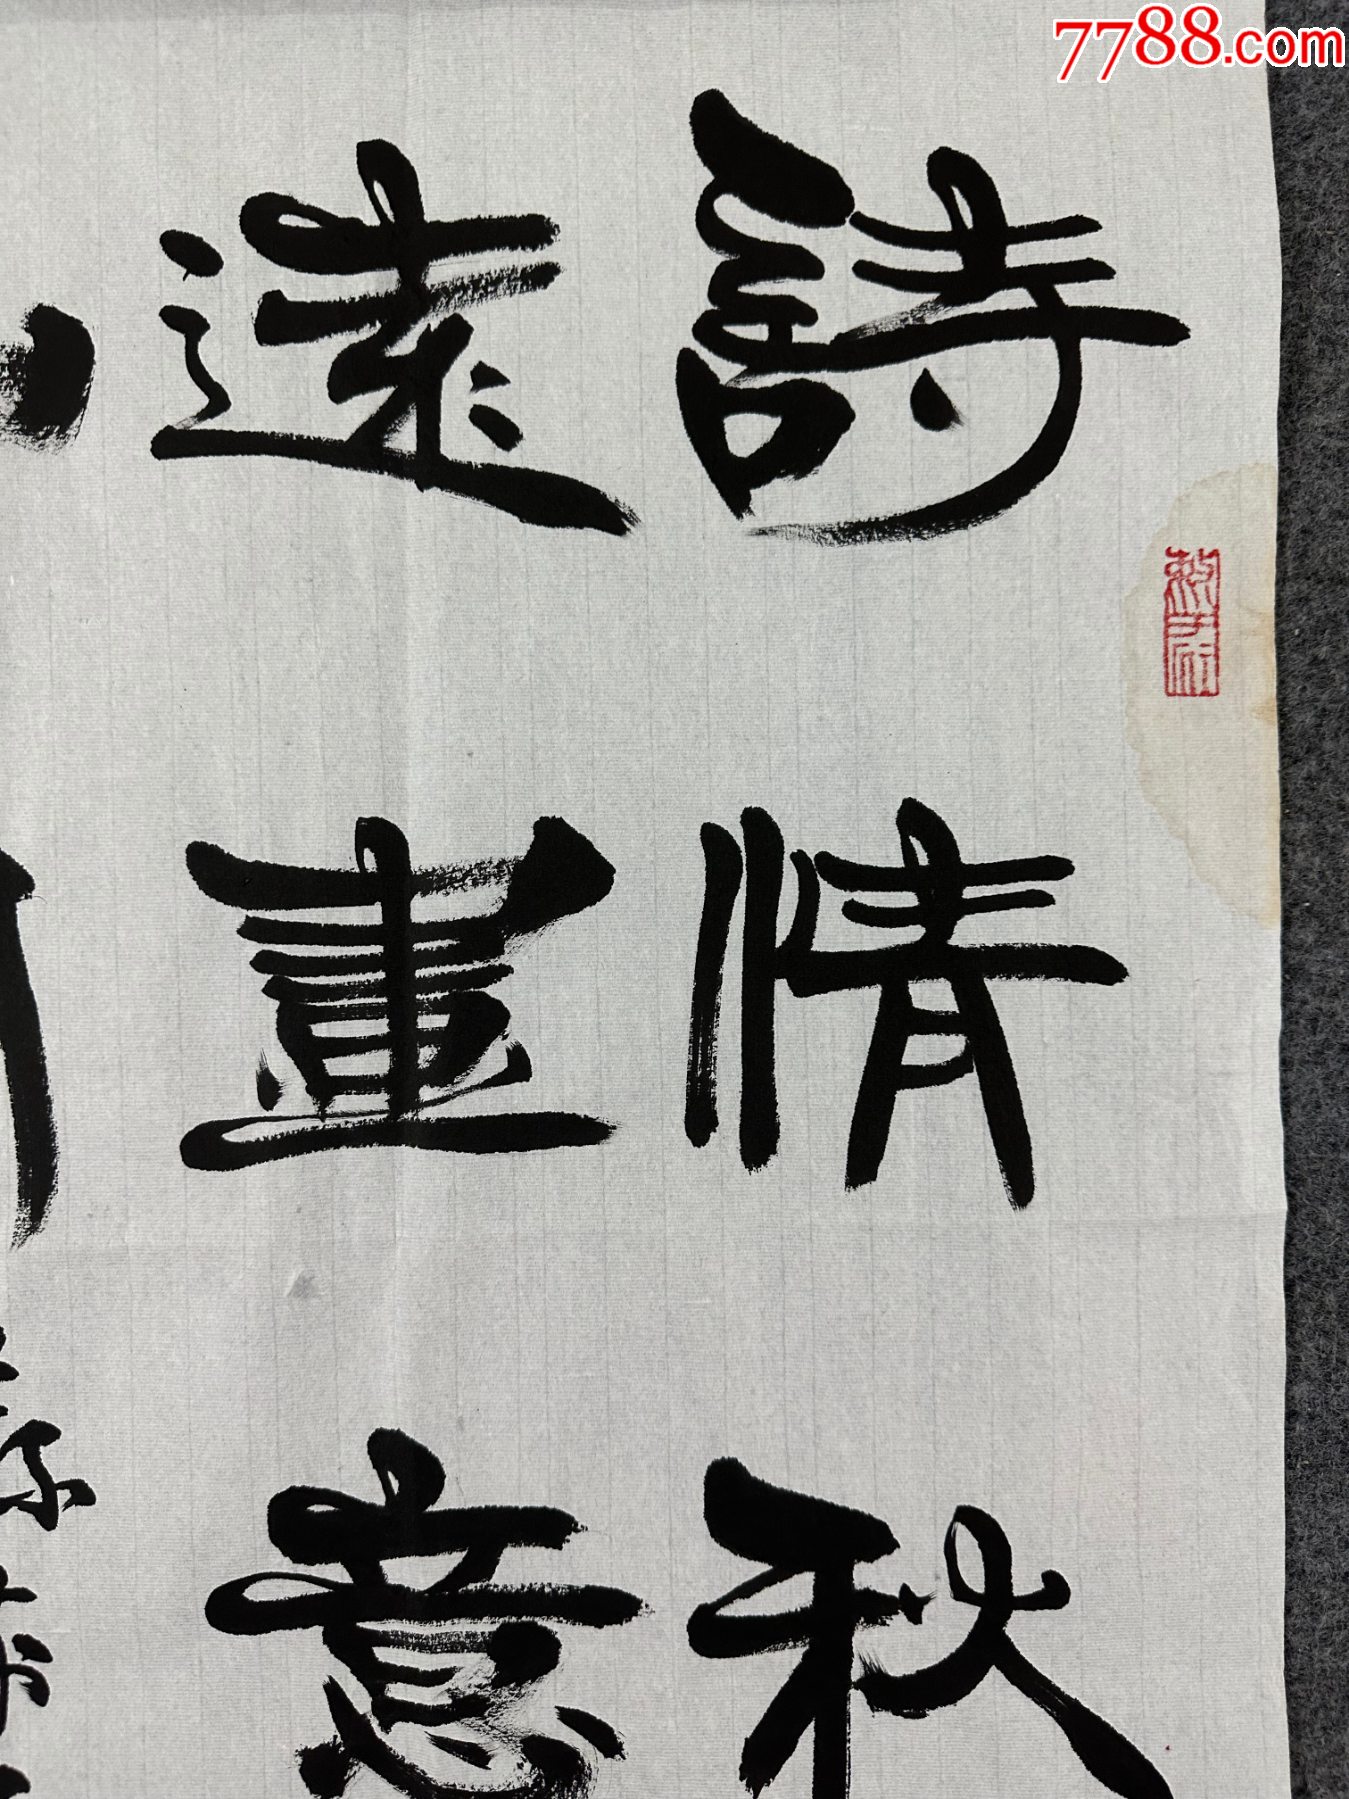 7788.com
詩情秋
遠畫意